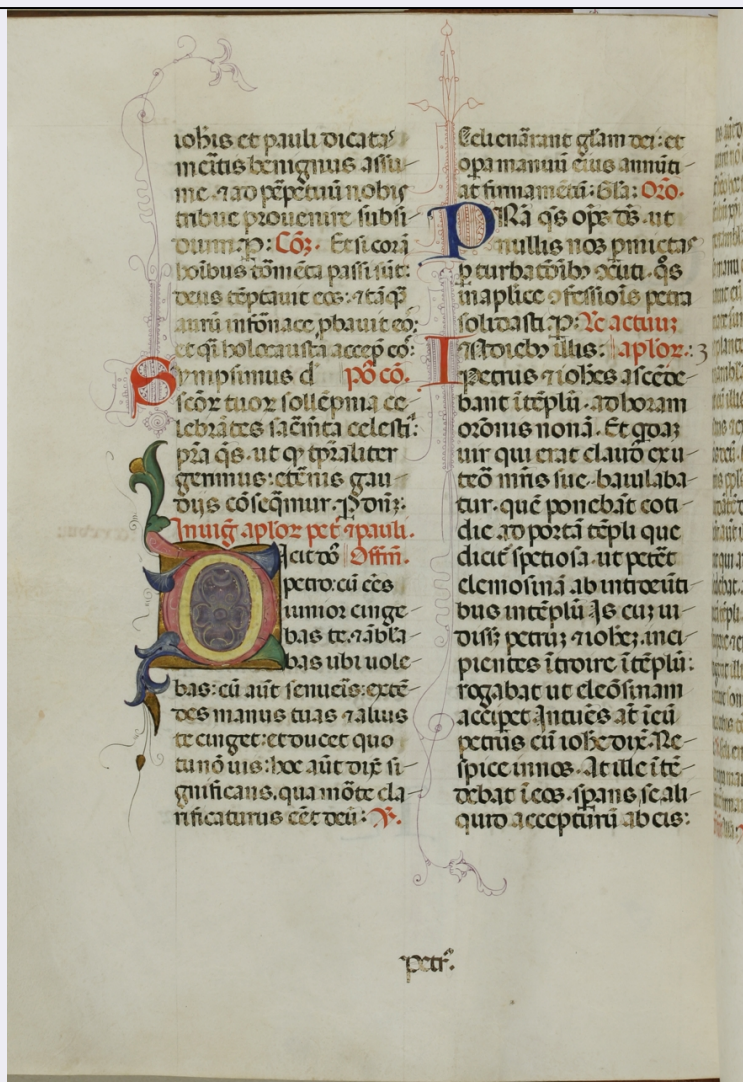 iohis et pauli dicatas
meritis benignus assu
me. ⁊ ad ppetuū nobis
tribue provenire subsi
dium. P: Cōᷓ. Et si corā
hoībus tōmēta passi sūt:
deus tēptauit eos: ⁊ tāq̄
aurū in fornace pbauit eos
et q̄i holocausta accep̄ eos:
Sympsimus dñe pō cō.
sc̄oꝝ tuoꝝ sollēpnia ce
lebrātes sac̄mta celesti:
pra q̄s. ut q̄ tpraliter
gerimus: etēnis gau
diis cōseq̄mur. P dnz:
In uiḡ aploꝝ pet̄ ⁊ pauli.
Dicit dō Offim̄.
petro: cū eēs
iunior cinge
bas te. ⁊ ābla
bas ubi uole
bas: cū aūt senueīs: extē
des manus tuas ⁊ alius
te cinget: et ducet quo
tu nō uis: hoc aūt dix̄ si
gnificans. qua mōte cla
rificaturus eēt deū: ℣.
Celi enārrant gl̄am dei: et
op̄a manuū eius annūti
at firmamētū: Gl̄a: Orō.
PRa q̄s op̄s d̄s. ut
nullis nos pmictas
p turbatōib; cōcuti. q̄s
in aplice ↄfessiois petra
solidasti. P: Lc̄ actuuꝫ
In dieb; illis: aploꝝ. : 3
Petrus ⁊ iohes ascēde
bant ī tēplū. ad horam
orōnis nonā. Et q̄daꝫ
uir qui erat claud̄ ex u
teō mr̄is sue. baiulaba
tur. quē ponebāt coti
die ad portā tēpli que
dicit̄ spetiosa. ut petēt
elemosinā ab introeūti
bus in tēplū Is cuꝫ ui
dissꝫ petruꝫ ⁊ iohēꝫ. inci
pientes ītroire ī tēplū:
rogabat ut eleōsinam
accip̄et Intuēs aūt ī eū
petrus cū iohe dix̄. Re
spice in nos. At ille ītē
debat ī eos. sp̄ans se ali
quid accepturū ab eis:
petr̄.